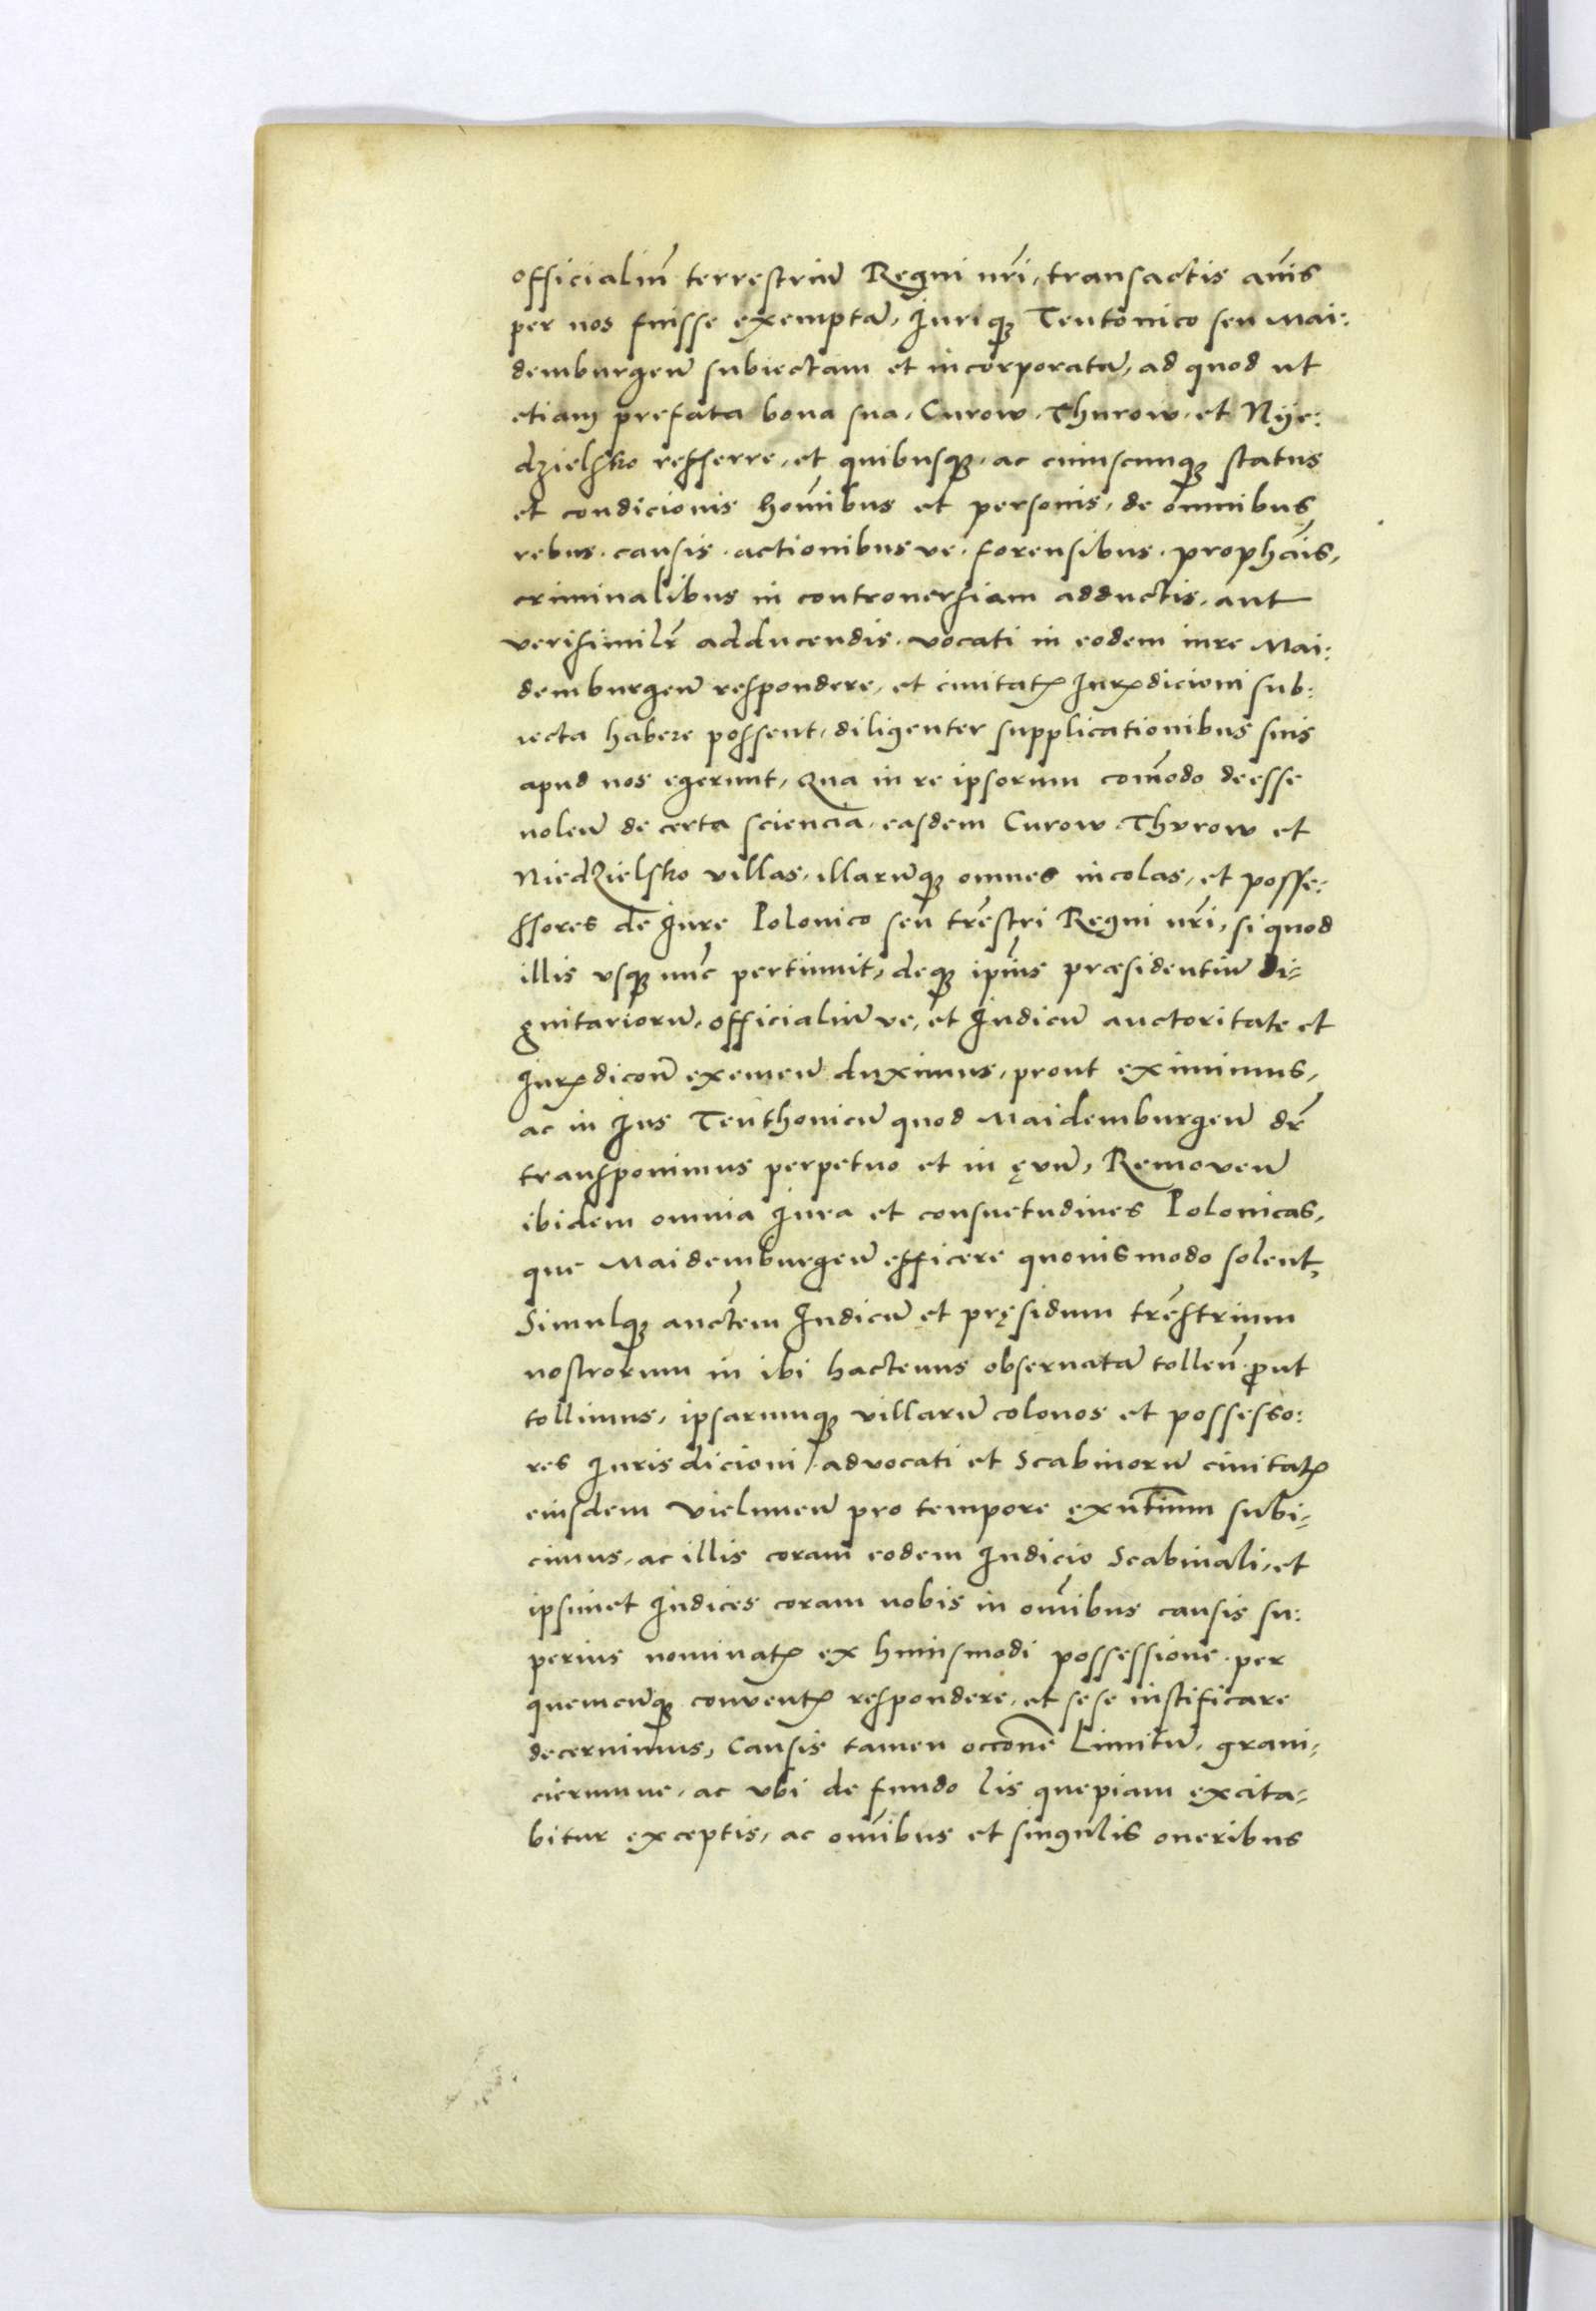 officialiū terrestriū Regni nr̄i, transactis annis
per nos fuisse exemptā, Iuriq; Teutonico seu Mai:
demburgeñ subiectam et incorporatā, ad quod ut
etiam prefata bona sua, Curow, Thurow, et Nÿe:
dzielsko refferre, et quibusq;, ac cuiuscunq; status
et condicionis hoīnibus et personis, de omnibus
rebus. causis. actionibus ve. forensibus. prophāis,
criminalibus in controuersiam adductis, aut
verisimilr̄ adducendis. vocati in eodem iure Mai:
demburgeñ respondere, et ciuitatꝭ Iurꝭdicioni sub:
iecta habere possent, diligenter supplicationibus suis
apud nos egerunt, Qua in re ipsorum com̄odo deesse
noleñ de certa sciencia, easdem Curow Thvrow et
Niedzielsko villas, illarūq; omnes incolas, et posse:
ssores de Iure Polonico seu tr̄estri Regni nr̄i, si quod
illis vsq; nūc pertinuit, deq; ip̄ius præsidentiū di=
gnitariorū, officialiū ve, et Iudicū auctoritate et
Iurꝭdicoñ exemeñ duximus, prout eximimus,
ac in Ius Teuthonicū quod Maidemburgeñ dr̄
transponimus perpetuo et in ęvū, Remoueñ
ibidem omnia Iura et consuetudines Polonicas,
que Maidemburgeñ efficere quouismodo solent,
Simulq; auctem̄ Iudicū et pręsidum tr̄estrium
nostrorum in ibi hactenus obseruatā tolleñ. ꝓut
tollimus, ipsarumq; villarū colonos et possesso:
res Iurisdicioni, advocati et Scabinorū ciuitatꝭ
eiusdem Vieluneñ pro tempore exñtium subi=
cimus, ac illis coram eodem Iudicio Scabinali, et
ipsimet Iudices coram nobis in om̄ibus causis su:
perius nominatꝭ ex huiusmodi possessione. per
quemcūq; conventꝭ respondere, et sese iustificare
decernimus, Causis tamen occōne Limitū, grani=
cierumue, ac vbi de fundo lis quepiam excita=
bitur exceptis, ac om̄ibus et singulis oneribus